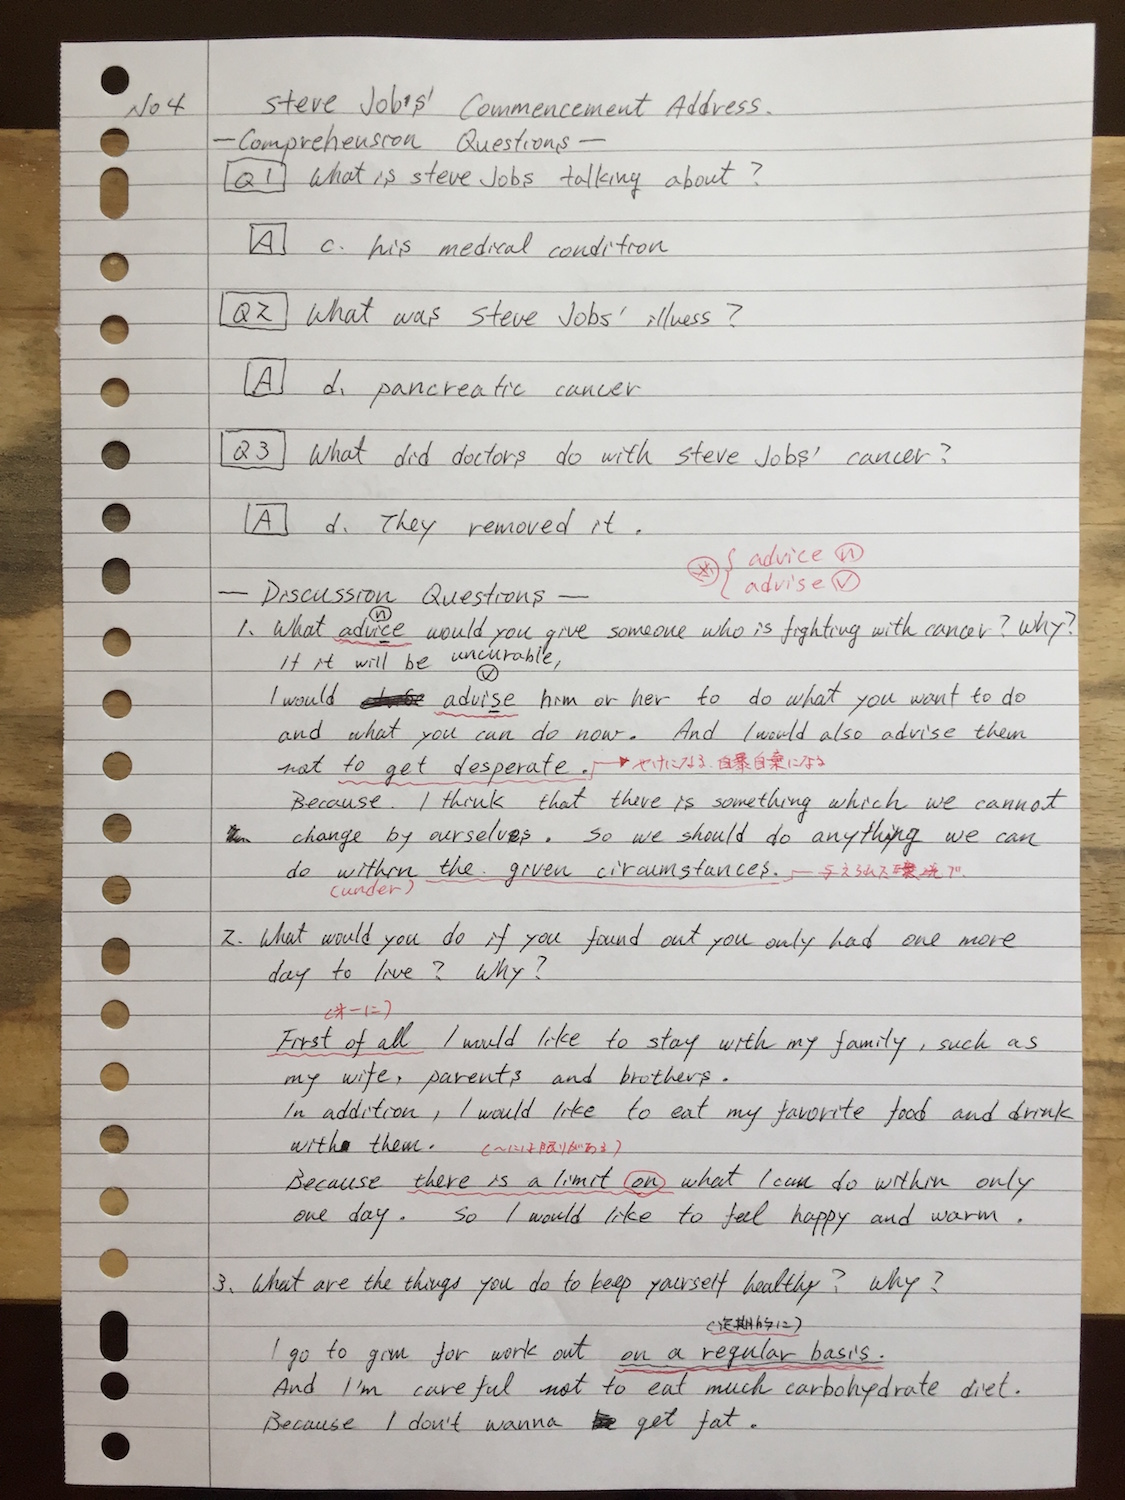 No 4 Steve Job's' Commencement Address.
— Comprehension Questions —
Q1 What is Steve Jobs talking about?
A c. his medical condition
Q2 What was Steve Jobs' illness?
A d. pancreatic cancer
Q3 What did doctors do with Steve Jobs' cancer?
A d. They removed it.
※ { advice n
advise v
— Discussion Questions —
n
1. What advice would you give someone who is fighting with cancer? Why?
If it will be uncurable,
v
I would advise him or her to do what you want to do
and what you can do now. And I would also advise them
not to get desperate. → やけになる、自暴自棄になる
Because. I think that there is something which we cannot
change by ourselves. So we should do anything we can
do within the given circumstances. — 与えられた環境で
(under)
2. What would you do if you found out you only had one more
day to live? Why?
(第一に)
First of all I would like to stay with my family, such as
my wife, parents and brothers.
In addition, I would like to eat my favorite food and drink
with them. (〜には限りがある)
Because there is a limit on what I can do within only
one day. So I would like to feel happy and warm.
3. What are the things you do to keep yourself healthy? Why?
(定期的に)
I go to gim for work out on a regular basis.
And I'm careful not to eat much carbohydrate diet.
Because I don't wanna get fat.